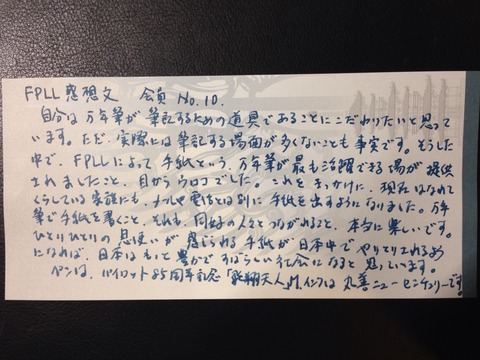 FPLL 感想文　会員 No.10.
自分は万年筆が筆記するための道具であることにこだわりたいと思って
います。ただ、実際には筆記する場面が多くないことも事実です。そうした
中で、FPLLによって手紙という、万年筆が最も活躍できる場が提供
されましたこと、目からウロコでした。これをきっかけに、現在はなれて
くらしている家族にも、メールや電話とは別に手紙を出すようになりました。万年
筆で手紙を書くこと、それも、同好の人々とつながれること、本当に楽しいです。
ひとりひとりの息使いが感じられる手紙が日本中でやりとりされるよう
になれば、日本はもっと豊かですばらしい社会になると思っています。
ペンは、パイロット85周年記念「飛翔天人」M、インクは丸善ニューセンチュリーです。